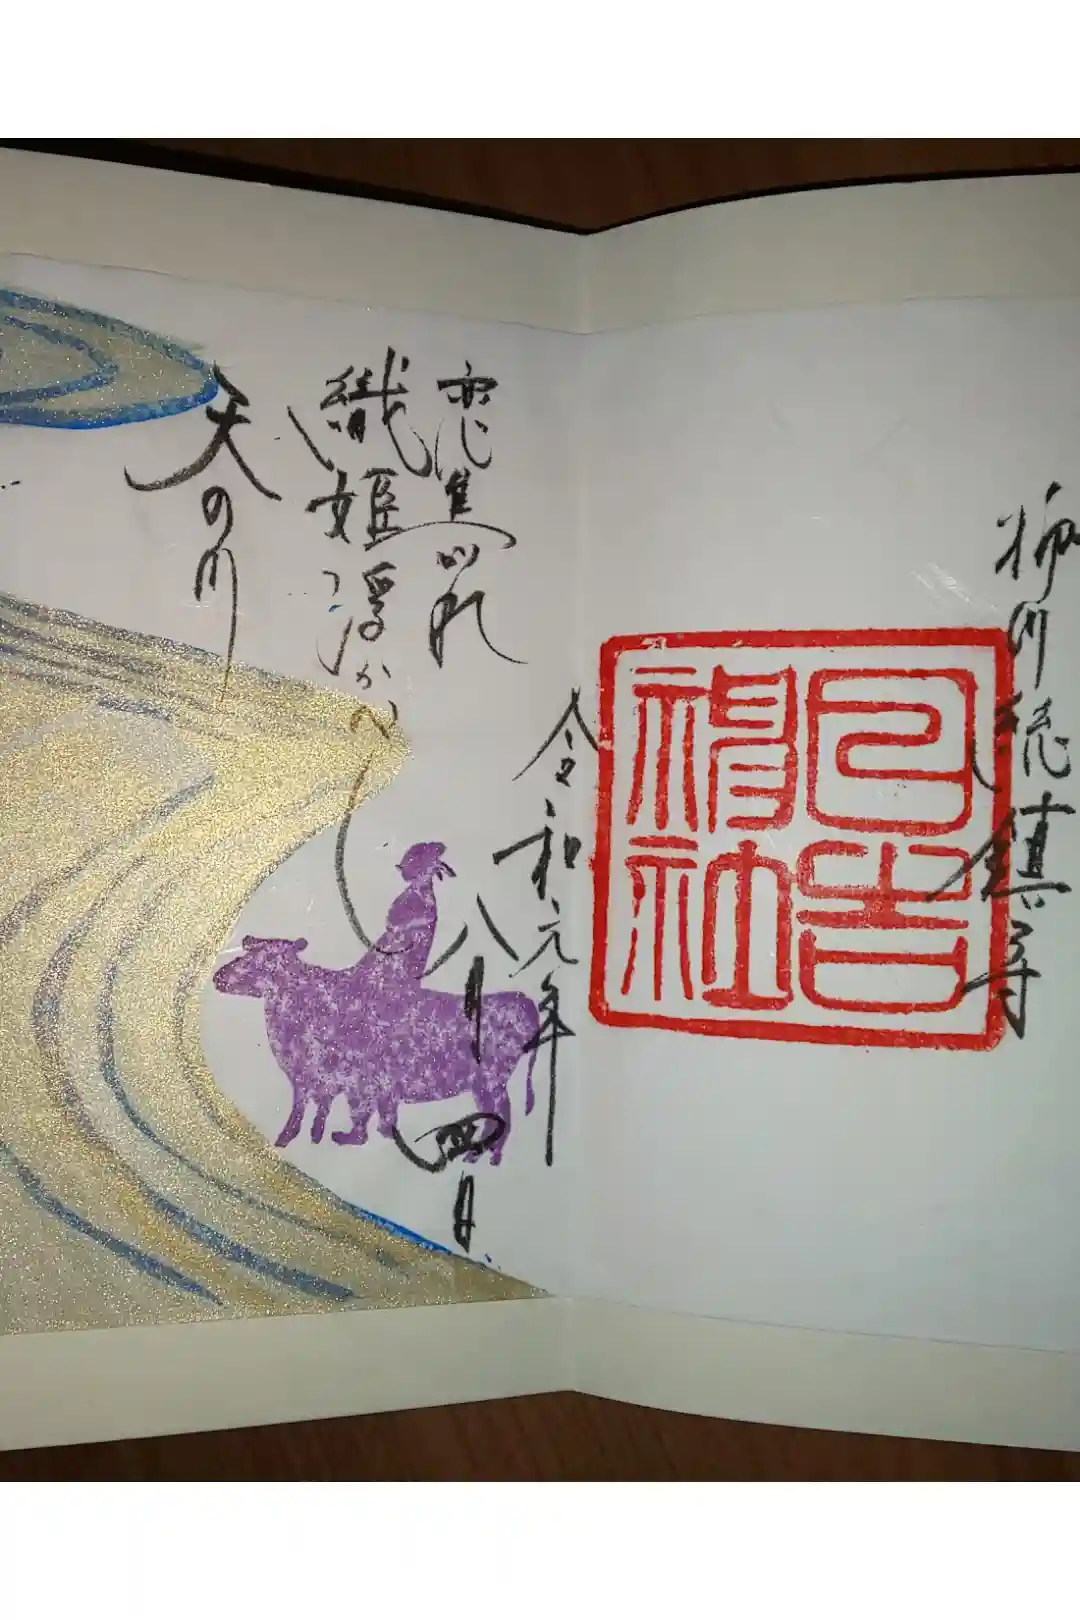 柳川総鎮守
日吉神社
令和元年
八月四日
恋焦がれ
織姫浮かべし
天の川